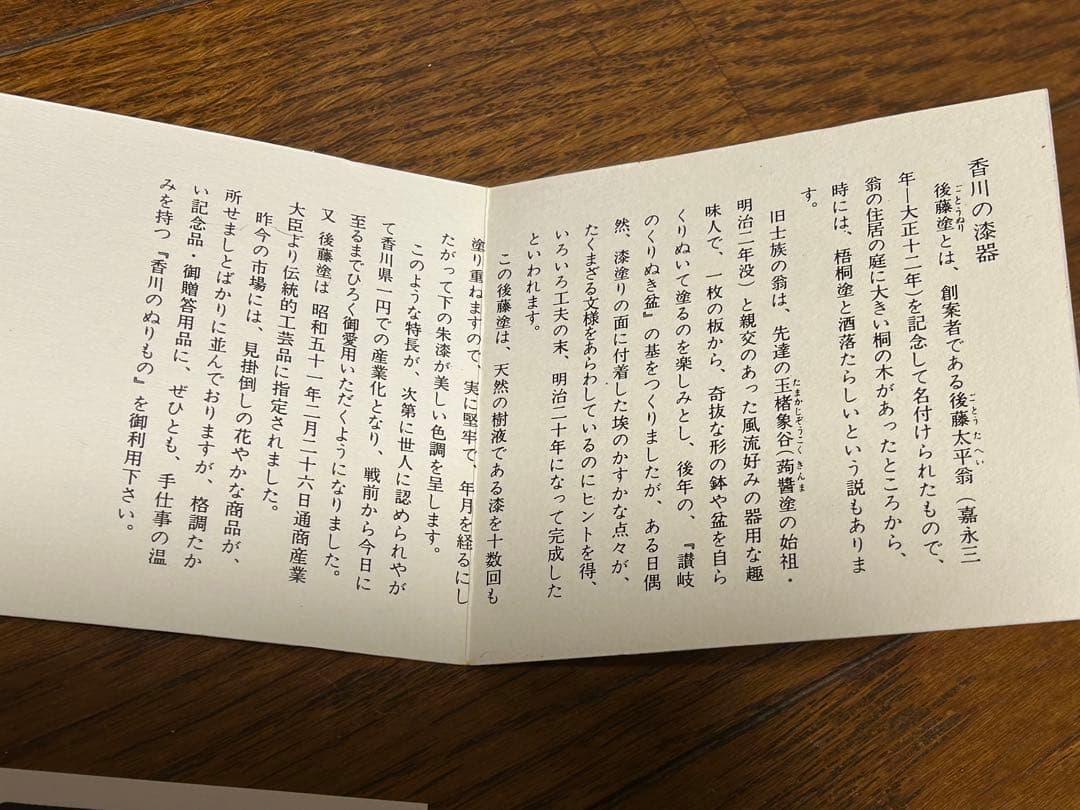 香川の漆器
後藤塗とは、創案者である後藤太平翁（嘉永三
年―大正十二年）を記念して名付けられたもので、
翁の住居の庭に大きい桐の木があったところから、
時には、梧桐塗と洒落たらしいという説もありま
す。
旧士族の翁は、先達の玉楮象谷（蒟醬塗の始祖・
明治二年没）と親交のあった風流好みの器用な趣
味人で、一枚の板から、奇抜な形の鉢や盆を自ら
くりぬいて塗るのを楽しみとし、後年の、『讃岐
のくりぬき盆』の基をつくりましたが、ある日偶
然、漆塗りの面に付着した埃のかすかな点々が、
たくまざる文様をあらわしているのにヒントを得、
いろいろ工夫の末、明治二十年になって完成した
といわれます。
この後藤塗は、天然の樹液である漆を十数回も
塗り重ねますので、実に堅牢で、年月を経るにし
たがって下の朱漆が美しい色調を呈します。
このような特長が、次第に世人に認められやが
て香川県一円での産業化となり、戦前から今日に
至るまでひろく御愛用いただくようになりました。
又 後藤塗は 昭和五十一年二月二十六日通商産業
大臣より伝統的工芸品に指定されました。
昨今の市場には、見掛倒しの花やかな商品が、
所せましとばかりに並んでおりますが、格調たか
い記念品・御贈答用品に、ぜひとも、手仕事の温
みを持つ『香川のぬりもの』を御利用下さい。
ごとうぬり
ごとう たへい
たまかじぞうこく
きんま